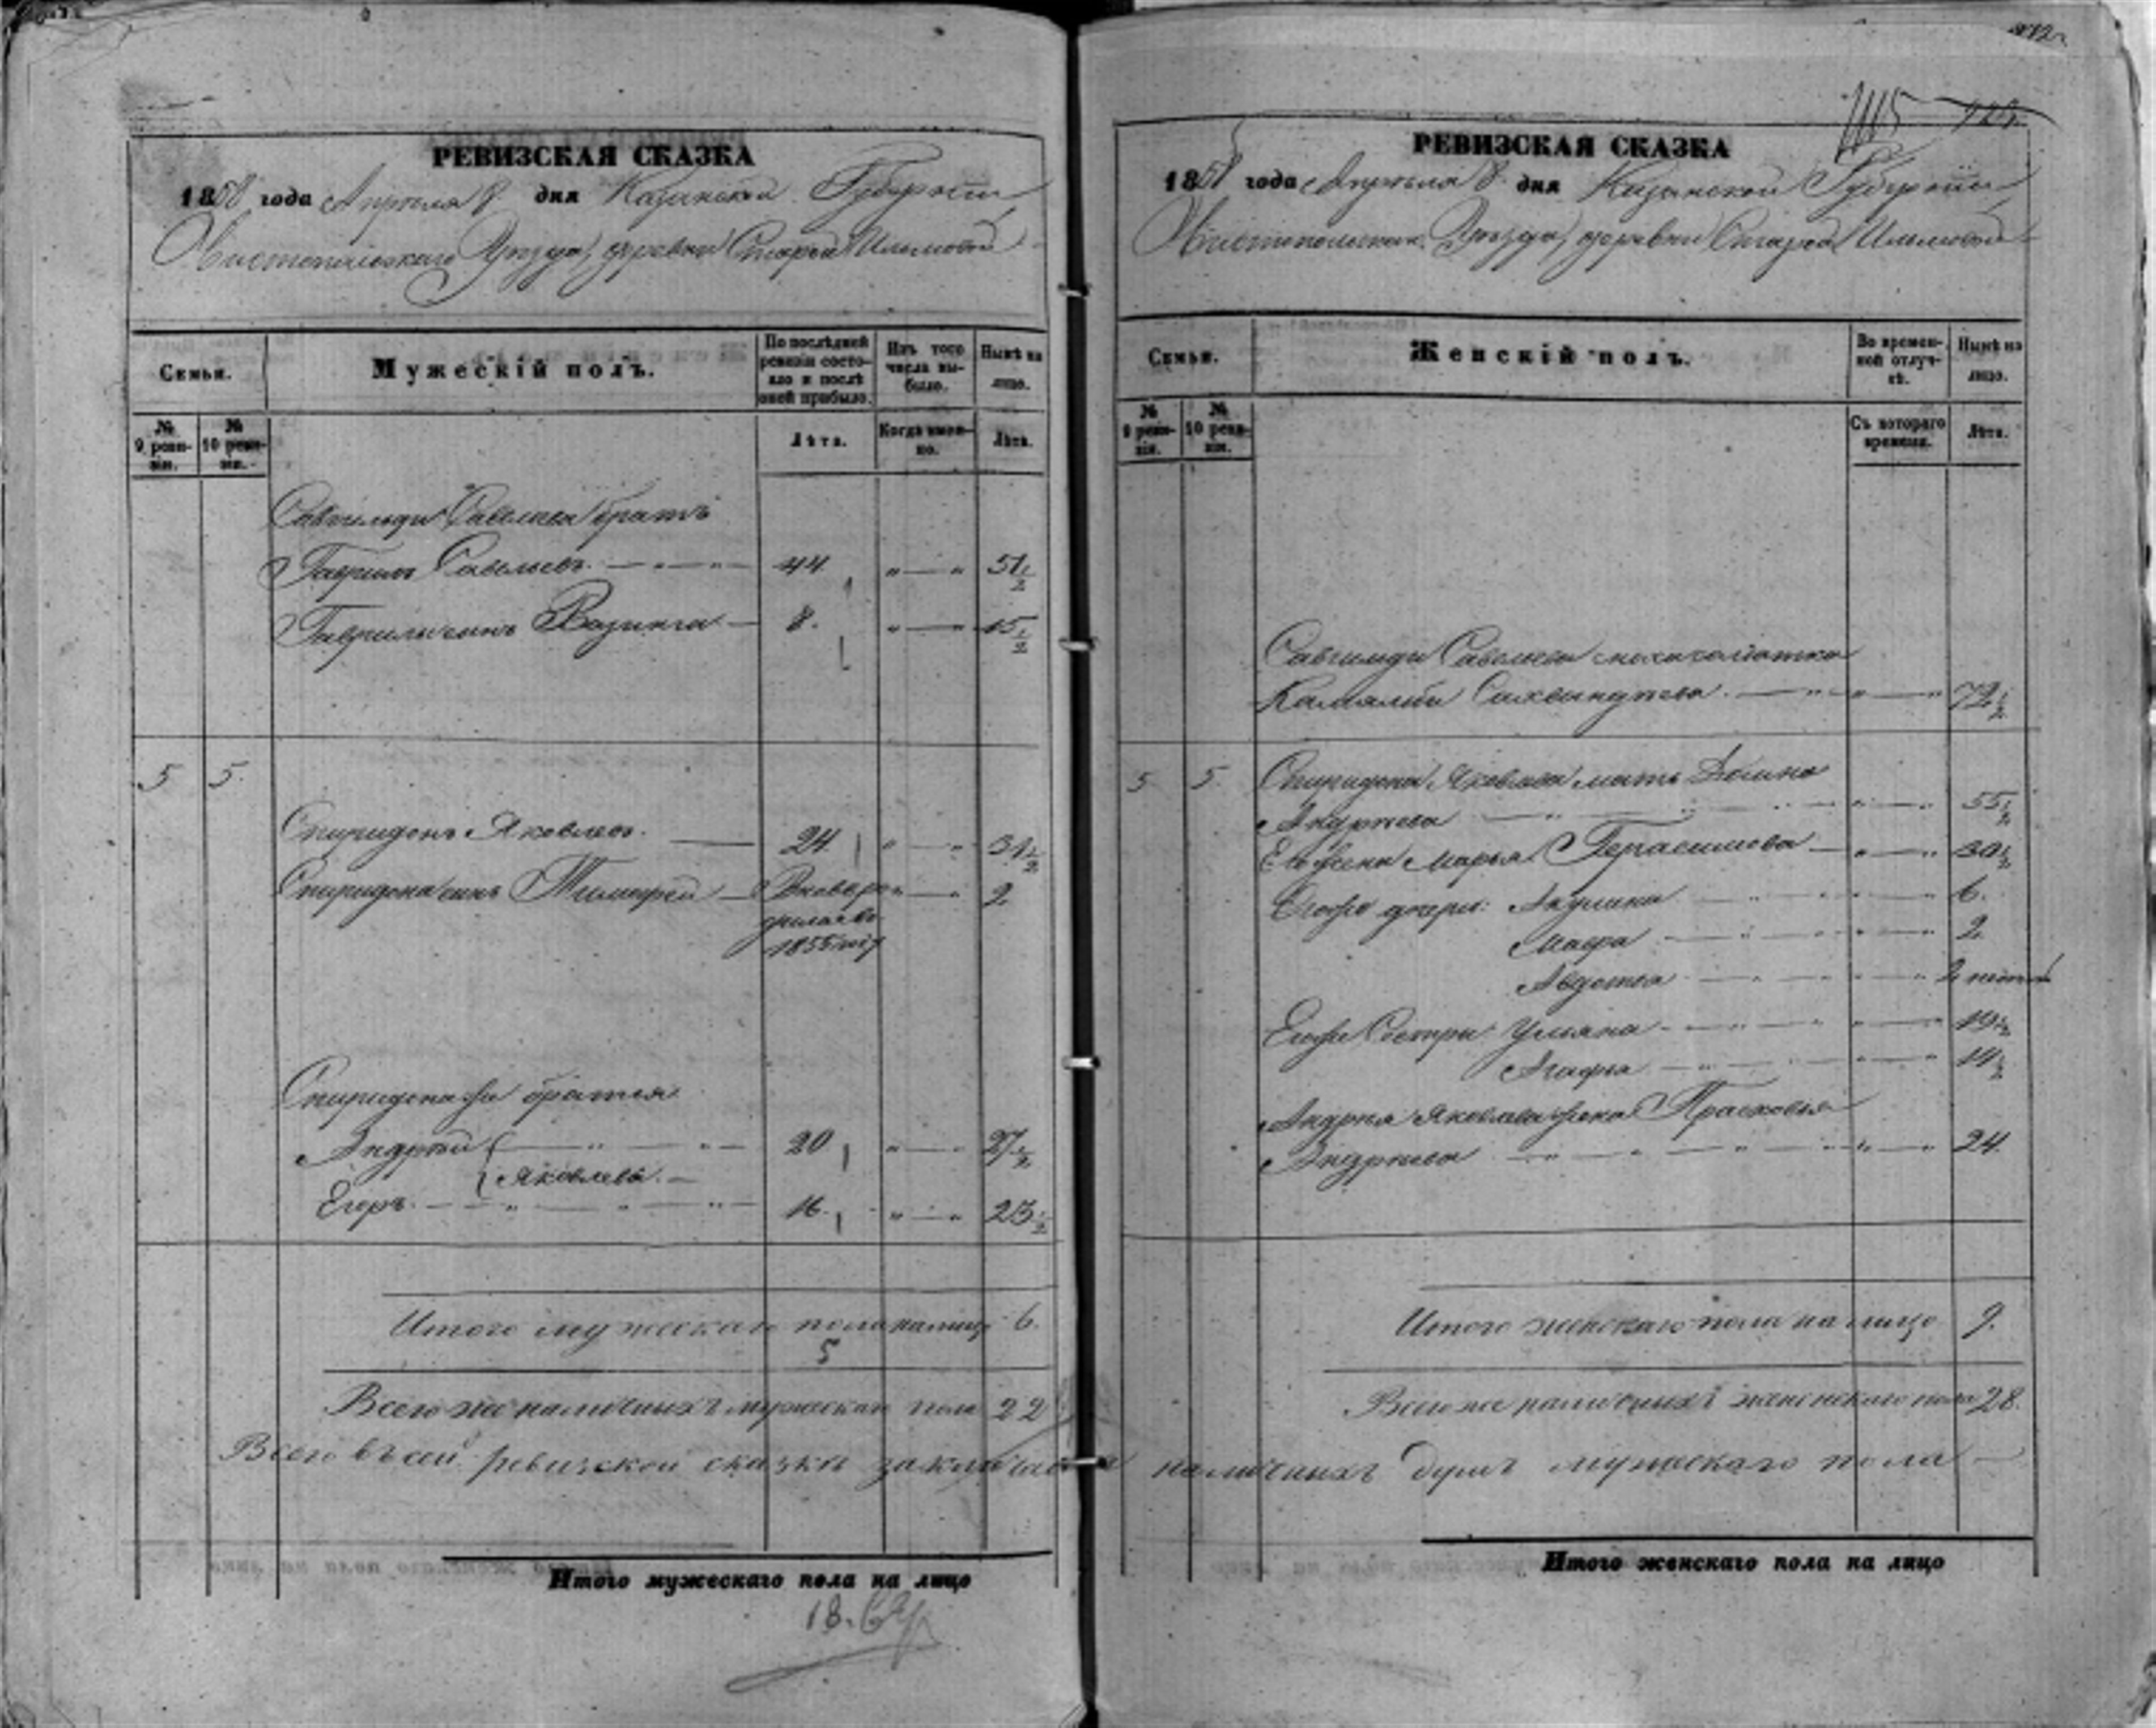 РЕВИЗСКАЯ СКАЗКА
1858 года Апреля 8 дня Казанской Губернiи
Чистопольскаго Уѣзда, деревни Старой Ильмовой
Семьи.
Мужескiй полъ.
По послѣдней ревизiи состояло и послѣ оной прибыло.
Изъ того числа выбыло.
Нынѣ на лицо.
№ 9 ревизiи.
№ 10 ревизiи.
Лѣта.
Когда именно.
Лѣта.
Савельева братъ
Гаврила Савельевъ 44. 51½
Гаврилы сынъ 8. 15½
5 5.
Спиридонъ Яковлевъ. 24. 31½
Спиридона сынъ Тимофей 2
1855 году
Спиридона же братья
Андрей 20 27½
Яковлевы.
Егоръ. 16. 23½
Итого мужескаго пола на лицо 6.
5
Всего же наличныхъ мужескаго пола 22
Всего въ сей ревизской сказкѣ заключается
Итого мужескаго пола на лицо
18.
РЕВИЗСКАЯ СКАЗКА
1858 года Апреля 8. дня Казанской Губернiи
Чистопольскаго Уѣзда, деревни Старой Ильмовой
Семьи.
Женскiй полъ.
Во временной отлучкѣ.
Нынѣ на лицо.
№ 9 ревизiи.
№ 10 ревизiи.
Съ котораго времени.
Лѣта.
Савельева
72½
5 5. Спиридона Яковлева мать
Андреева 55½
Его жена Марья Герасимова 30½
Его же дочери: Акулина 6.
Мавра 2.
Авдотья
Его же Сестры Ульяна 19½
Агафья 14½
Андрея Яковлева жена Прасковья
Андреева 24.
Итого женскаго пола на лицо 9.
Всего же наличныхъ женскаго пола 28.
наличныхъ душъ мужескаго пола
Итого женскаго пола на лицо